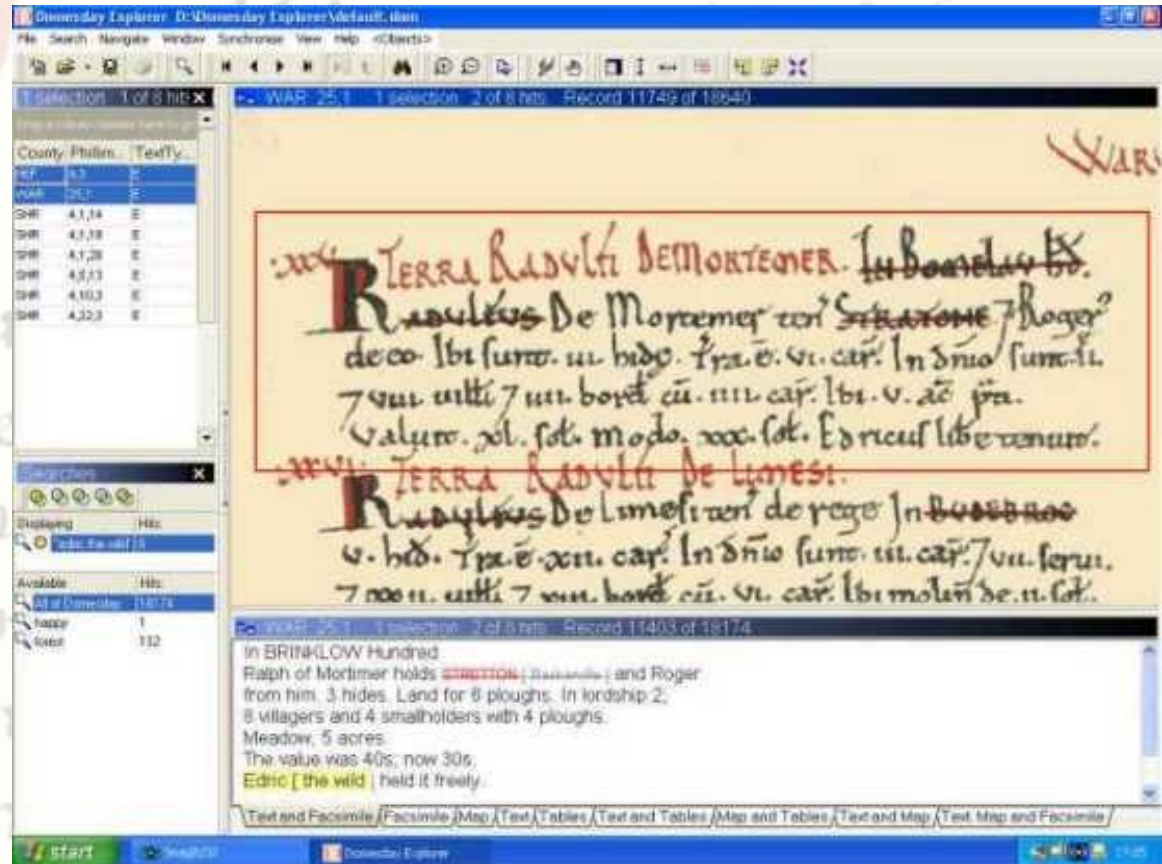 Domesday Explorer D:\Domesday Explorer\default.dom
File Search Navigate Window Synchronise View Help <Objects>
1 selection 1 of 8 hits
County Phillim... TextTy...
WAR 25,1 E
SHR 4,1,14 E
SHR 4,1,18 E
SHR 4,1,28 E
SHR 4,5,13 E
SHR 4,10,3 E
SHR 4,22,3 E
Searches
Displaying Hits
"edric the wild" 8
Available Hits
All of Domesday 18174
happy 1
forest 132
WAR 25,1 1 selection 2 of 8 hits Record 11749 of 18640
WAR
TERRA RADVLFI DE MORTEMER. In Bomelau hd.
RADULFUS De Mortemer ten STRATONE 7 Roger
de eo. Ibi sunt. iii. hidę. Tra. ē. vi. car. In dnio sunt. ii.
7 viii. uitti 7 iiii. bord cū. iiii. car. Ibi. v. ac pti.
Valuit. xl. sol. modo. xxx. sol. Edricus libe tenuit.
TERRA RADVLFI DE LIMESI.
RADULFUS De Limesi ten de rege In BUDEBROC
v. hid. Tra. ē. xii. car. In dnio sunt. iii. car. 7 vii. serui.
WAR 25,1 1 selection 2 of 8 hits Record 11403 of 18174
In BRINKLOW Hundred
Ralph of Mortimer holds STRETTON [ Baskerville ] and Roger
from him. 3 hides. Land for 6 ploughs. In lordship 2;
8 villagers and 4 smallholders with 4 ploughs.
Meadow, 5 acres.
The value was 40s; now 30s.
Edric [ the wild ] held it freely.
Text and Facsimile Facsimile Map Text Tables Text and Tables Map and Tables Text and Map Text, Map and Facsimile
start Domesday Explorer